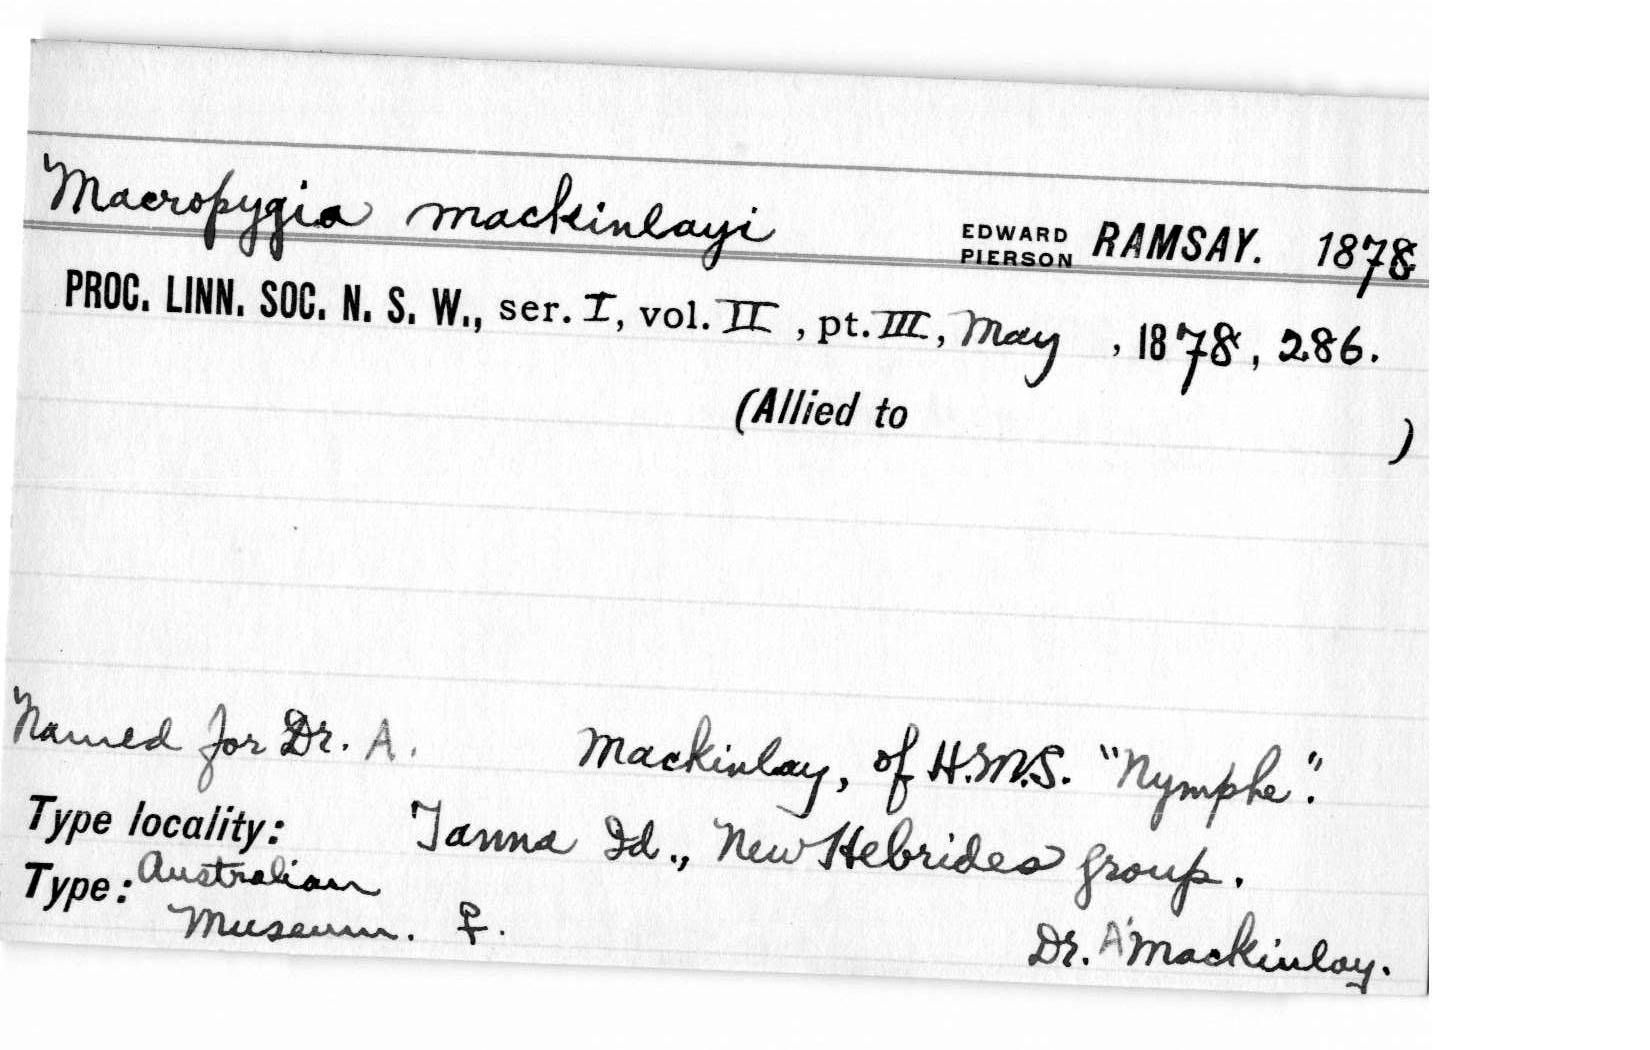 Macropygia mackinlayi EDWARD PIERSON RAMSAY. 1878
PROC. LINN. SOC. N. S. W., ser. I, vol. II, pt. III, May, 1878, 286.
(Allied to )
Named for Dr. A. Mackinlay, of H.M.S. "Nymphe".
Type locality: Tanna Id., New Hebrides group.
Type: Australian
Museum. ♀.
Dr. A. Mackinlay.